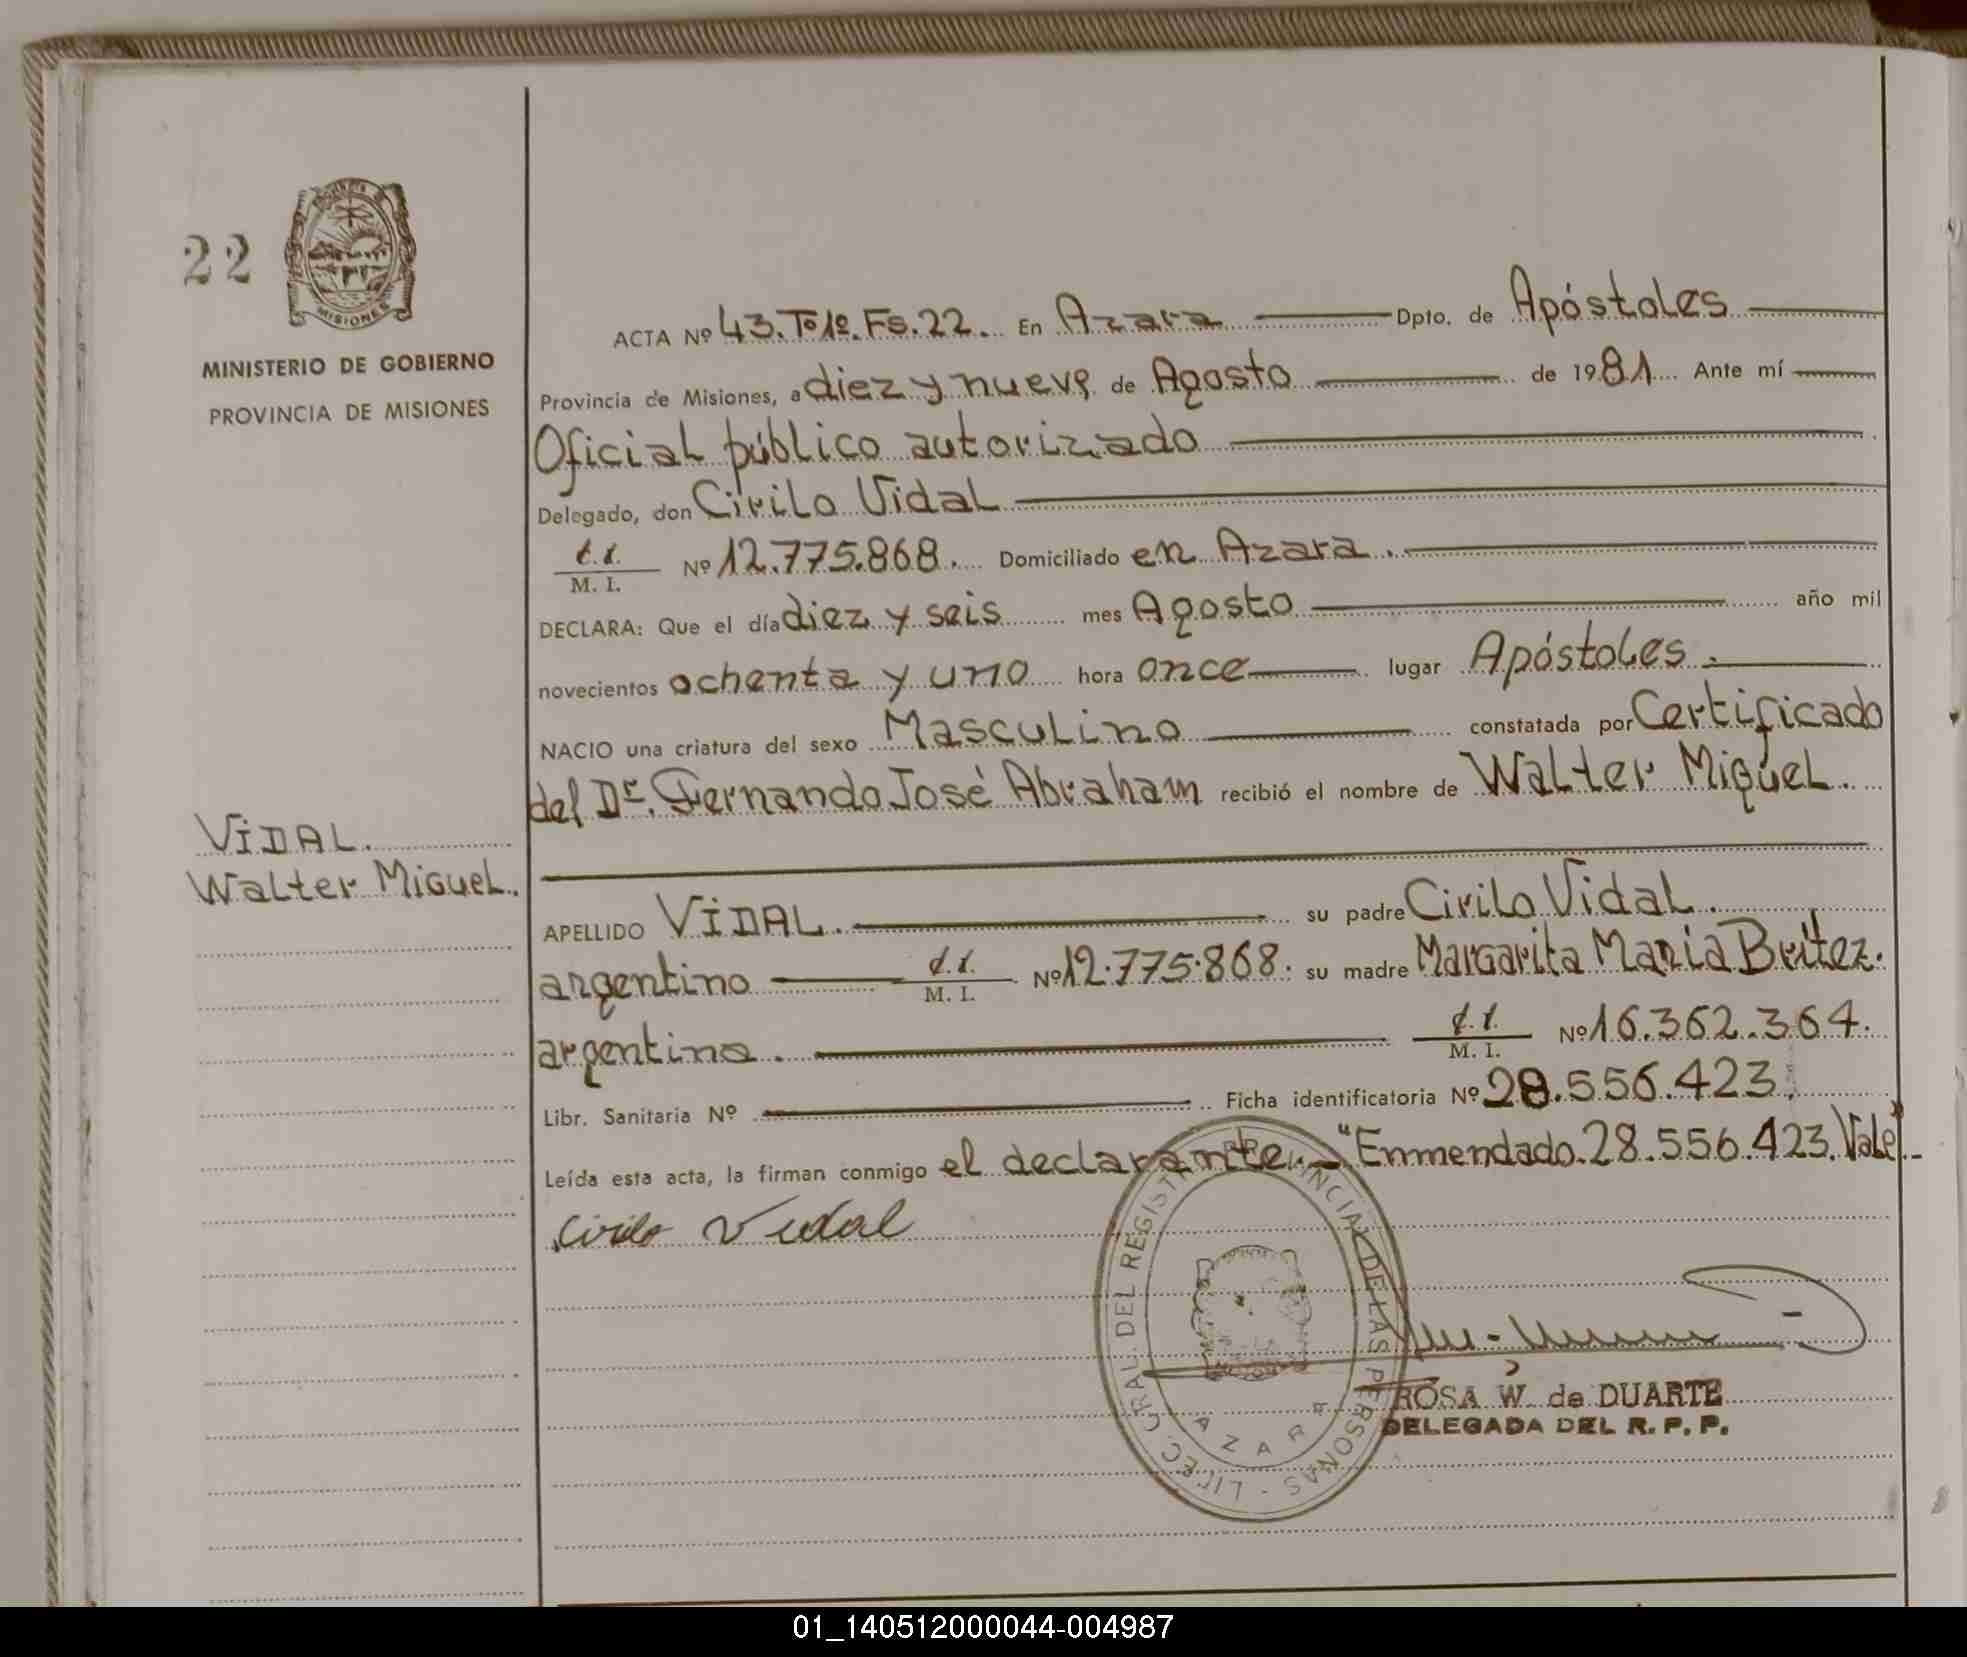 22
MISIONES
MINISTERIO DE GOBIERNO
PROVINCIA DE MISIONES
ACTA Nº 43. Tº 1º. Fs. 22. En Azara Dpto. de Apóstoles
Provincia de Misiones, a diez y nueve de Agosto de 1981 Ante mí
Oficial público autorizado
Delegado, don Cirilo Vidal
M. I. Nº 12.775.868. Domiciliado en Azara.
DECLARA: Que el día diez y seis mes Agosto año mil
novecientos ochenta y uno hora once lugar Apóstoles.
NACIO una criatura del sexo Masculino constatada por Certificado
del Dr. Fernando José Abraham recibió el nombre de Walter Miguel.
VIDAL.
Walter Miguel.
APELLIDO VIDAL. su padre Cirilo Vidal.
argentino M. I. Nº 12.775.868. su madre Margarita Maria Britez.
argentina. M. I. Nº 16.362.364.
Libr. Sanitaria Nº Ficha identificatoria Nº 28.556.423.
Leída esta acta, la firman conmigo el declarante. - "Enmendado. 28.556.423. Vale". -
Cirilo Vidal
GRAL. DEL REGISTRO PROVINCIAL DE LAS PERSONAS
AZARA
ROSA W. de DUARTE
DELEGADA DEL R. P. P.
01_140512000044-004987